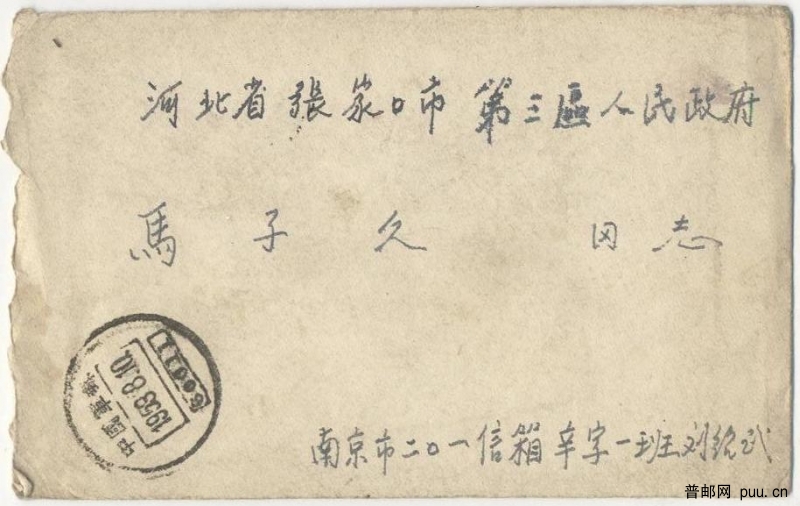 河北省張家口市第三區人民政府
馬子久 同志
中國軍郵
1953.8.10.
南京市二〇一信箱辛字一班刘紹武
普邮网 puu.cn